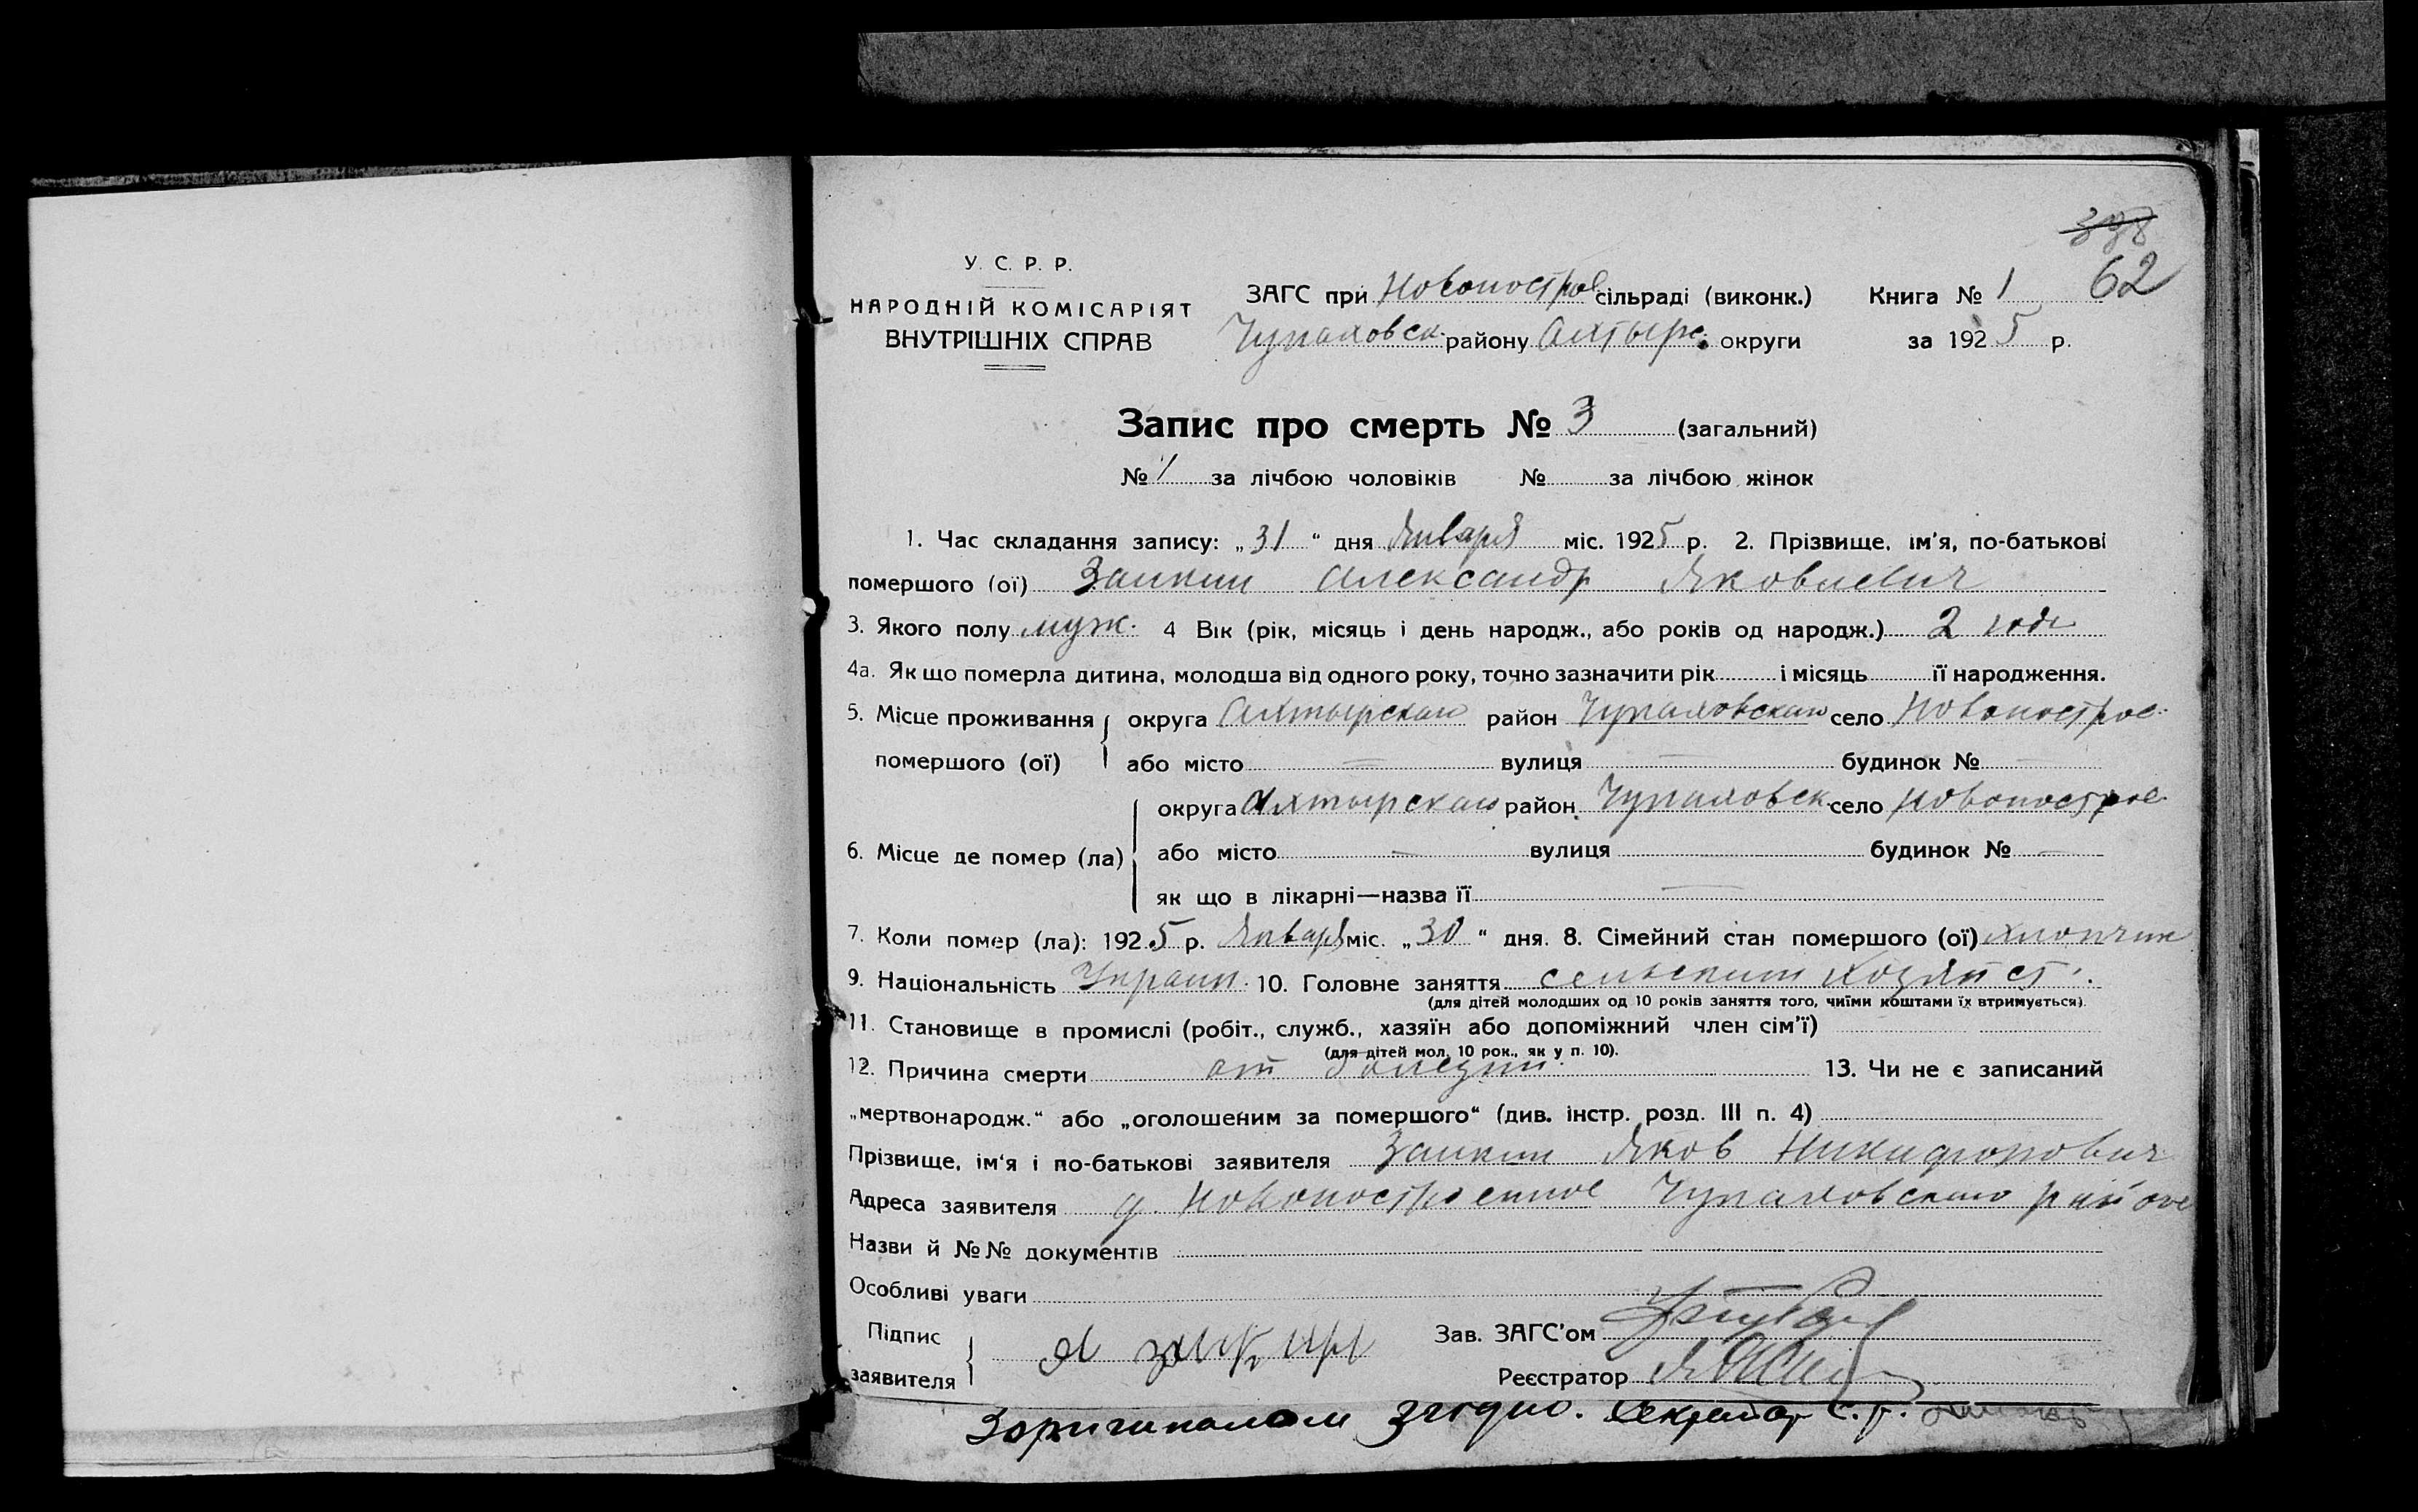 338
62
У. С. Р. Р.
НАРОДНІЙ КОМІСАРІЯТ
ВНУТРІШНІХ СПРАВ
ЗАГС при Новопострое сільраді (виконк.) Книга № 1
Чупаховск. району Ахтырс. округи за 1925 р.
Запис про смерть № 3 (загальний)
№ 1 за лічбою чоловіків № за лічбою жінок
1. Час складання запису: „31“ дня Января міс. 1925 р. 2. Прізвище, ім'я, по-батькові
помершого (ої) Заикин Александр Яковлевич
3. Якого полу муж. 4 Вік (рік, місяць і день народж., або років од народж.) 2 года
4а. Як що померла дитина, молодша від одного року, точно зазначити рік і місяць її народження.
5. Місце проживання округа Ахтырская район Чупаховская село Новопострое.
помершого (ої) або місто — вулиця — будинок № —
округа Ахтырская район Чупаховск. село Новопострое.
6. Місце де помер (ла) або місто — вулиця — будинок № —
як що в лікарні—назва її —
7. Коли помер (ла): 1925 р. Января міс. „30“ дня. 8. Сімейний стан помершого (ої) хлопчик
9. Національність Украин. 10. Головне заняття сельским хозяйст.
(для дітей молодших од 10 років заняття того, чиїми коштами їх втримується).
11. Становище в промислі (робіт., служб., хазяїн або допоміжний член сім'ї)
(для дітей мол. 10 рок., як у п. 10).
12. Причина смерти от болезни. 13. Чи не є записаний
„мертвонародж.“ або „оголошеним за помершого“ (див. інстр. розд. III п. 4)
Прізвище, ім'я і по-батькові заявителя Заикин Яков Никифорович
Адреса заявителя д. Новопостроенное Чупаховского район
Назви й №№ документів
Особливі уваги
Підпис
заявителя
Я Заикин
Зав. ЗАГС'ом
Реєстратор
З оригиналом згидно. Секретар С. р.